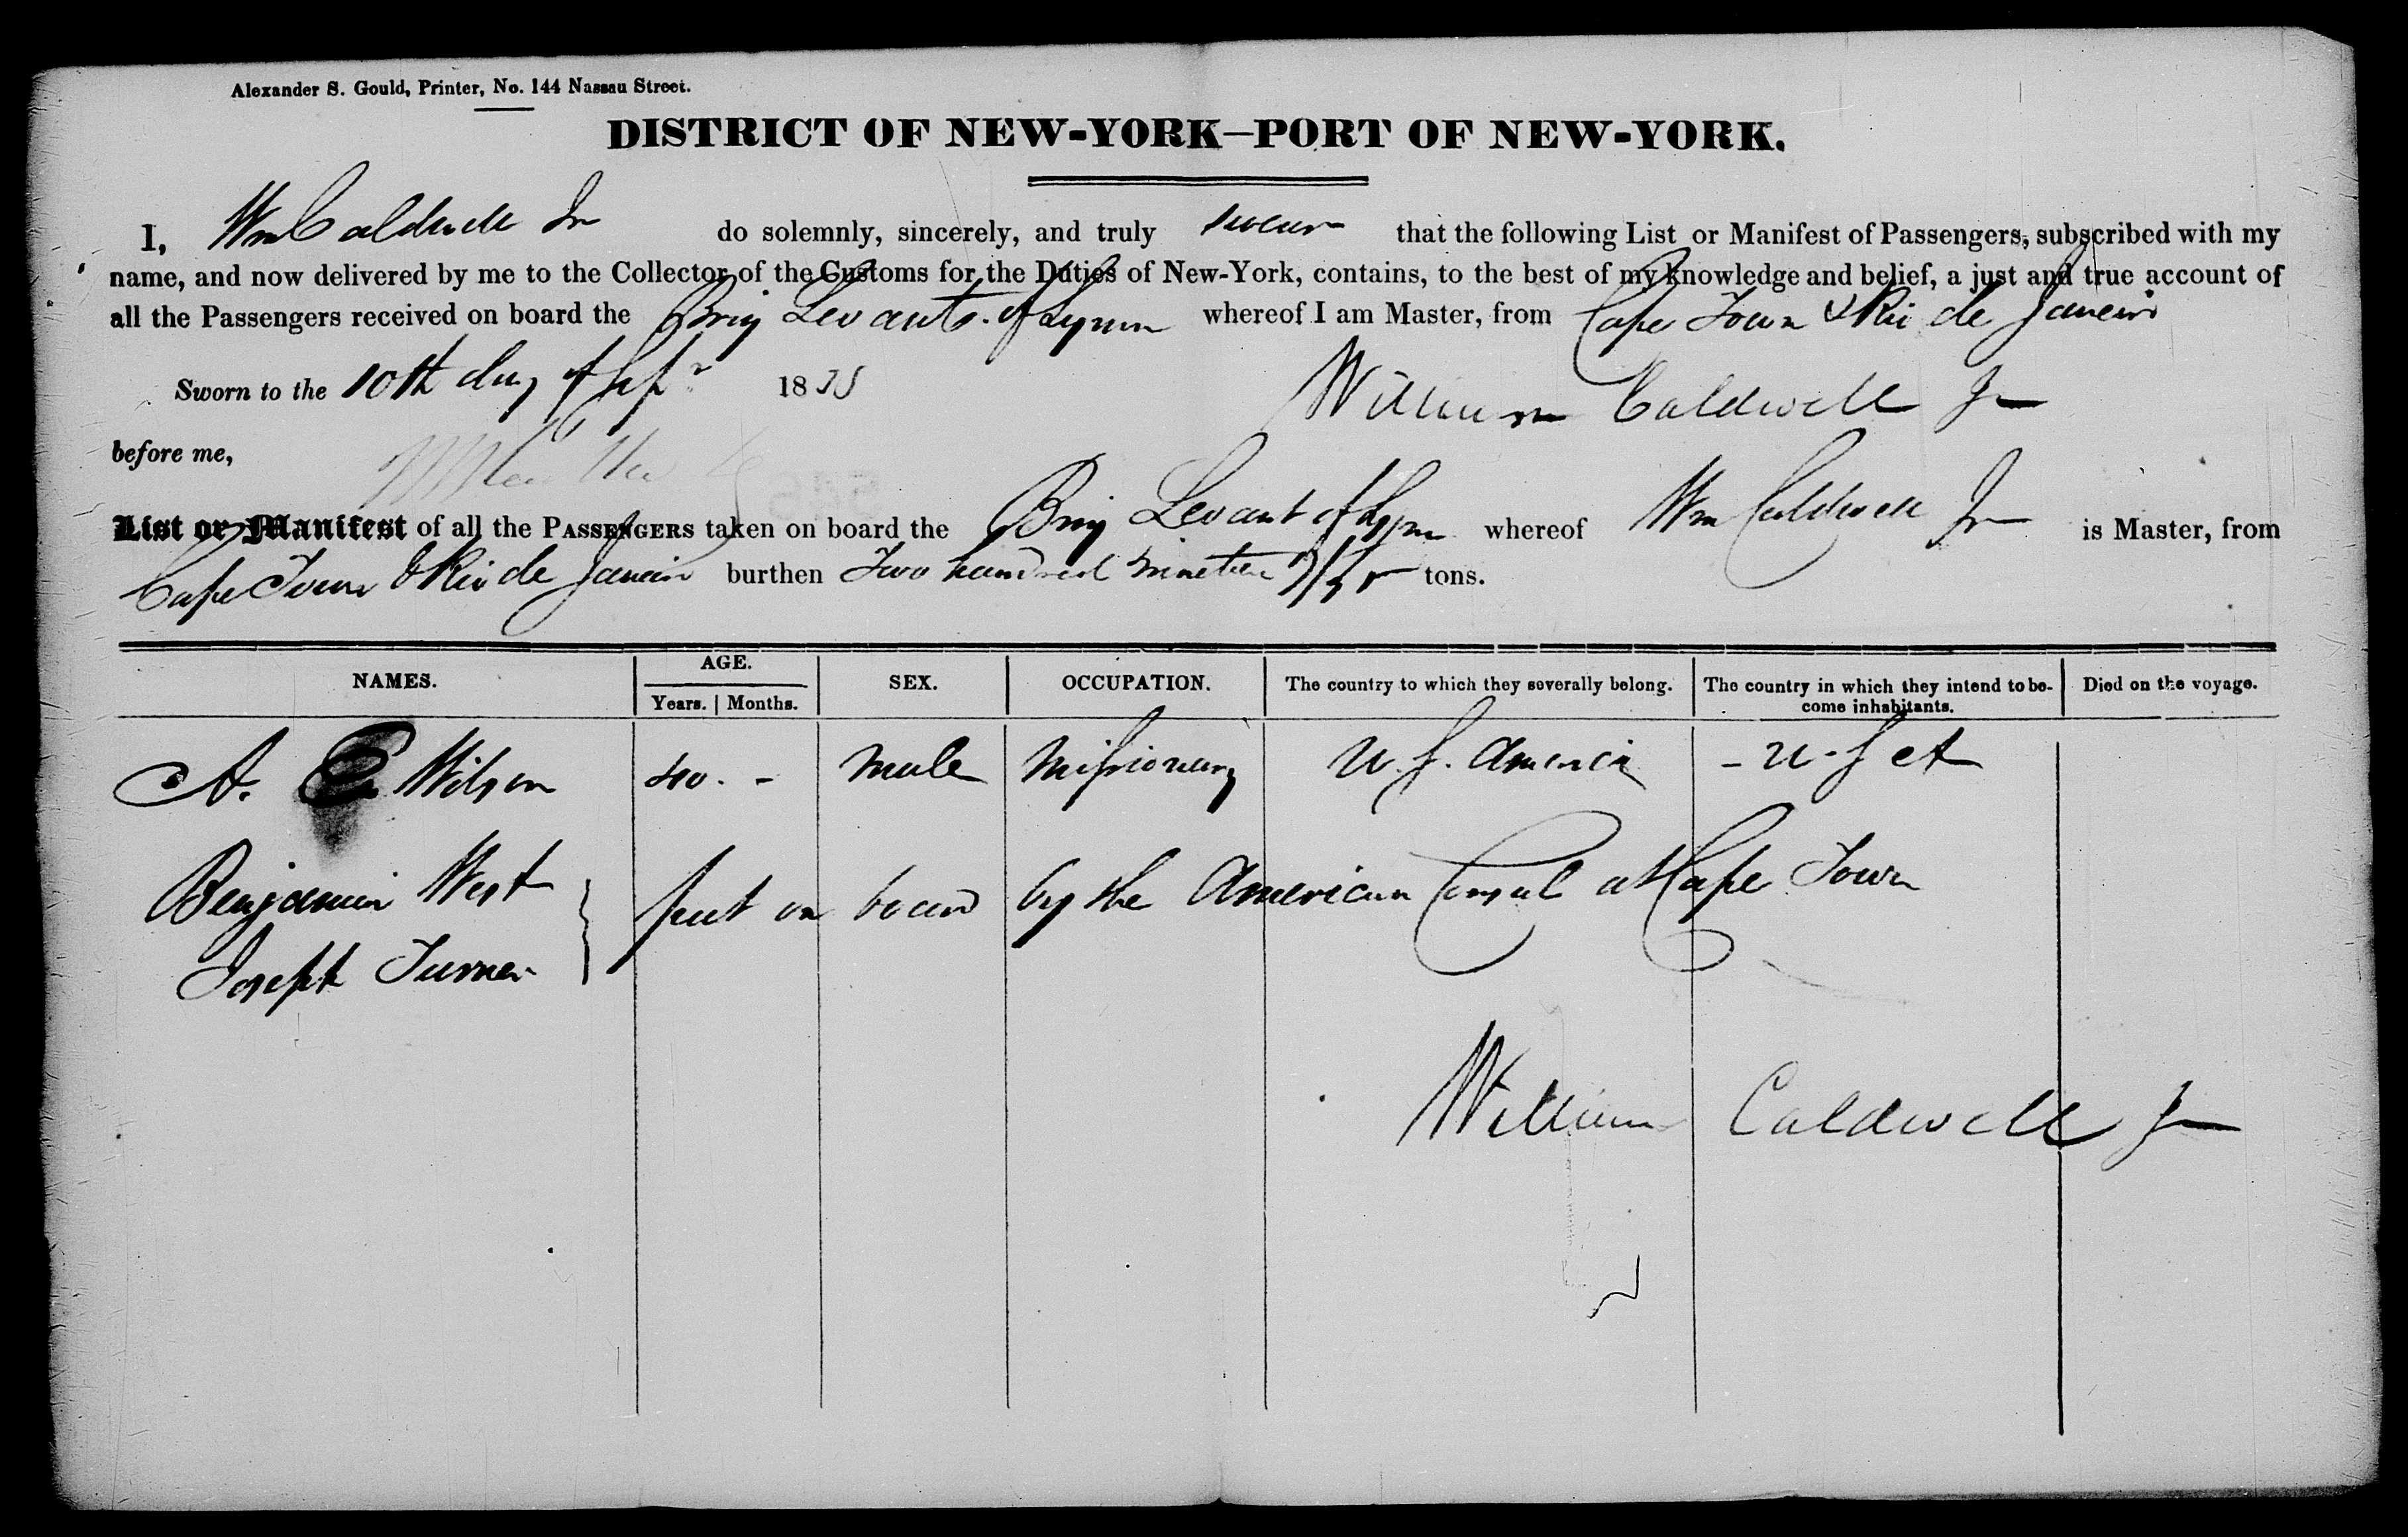 Alexander S. Gould, Printer, No. 144 Nassau Street.
DISTRICT OF NEW-YORK—PORT OF NEW-YORK.
I, Wm Caldwell Jr do solemnly, sincerely, and truly swear that the following List or Manifest of Passengers, subscribed with my
name, and now delivered by me to the Collector of the Customs for the Duties of New-York, contains, to the best of my knowledge and belief, a just and true account of
all the Passengers received on board the Brig Levant of Lynn whereof I am Master, from Cape Town & Rio de Janeiro
Sworn to the 10th day of Sepr 1838
William Caldwell Jr
before me,
List or Manifest of all the PASSENGERS taken on board the Brig Levant of Lynn whereof Wm Caldwell Jr is Master, from
Cape Town & Rio de Janeiro burthen Two hundred nineteen tons.
NAMES. AGE. SEX. OCCUPATION. The country to which they severally belong. The country in which they intend to be- Died on the voyage.
Years. Months. come inhabitants.
A. E Wilson 40. - male Missionary U. S. America - U. S of A
Benjamin West put on board by the American Consul at Cape Town
Joseph Turner
William Caldwell Jr